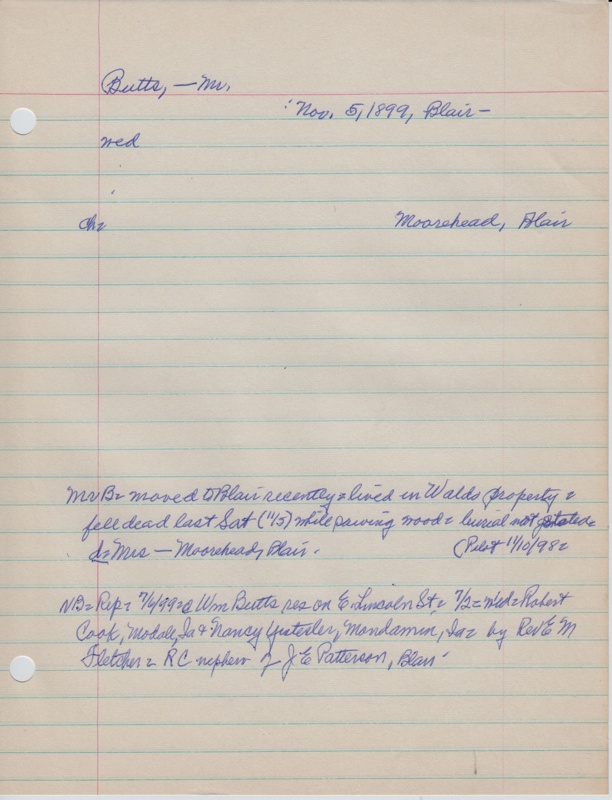 Butts, — Mr.
Nov. 5, 1899, Blair —
wed
ch=
Moorehead, Blair
Mr B= moved to Blair recently = lived in Walds property =
fell dead last Sat (11/5) while sawing wood = burial not stated=
d= Mrs — Moorehead, Blair.
(Pilot 11/10/98=
NB= Rep= 7/6/99= Wm Butts res on E. Lincoln St= 7/2= Wed= Robert
Cook, Modale, Ia & Nancy, Mondamin, Ia= by Rev E M
Fletcher= RC nephew of J E Patterson, Blair